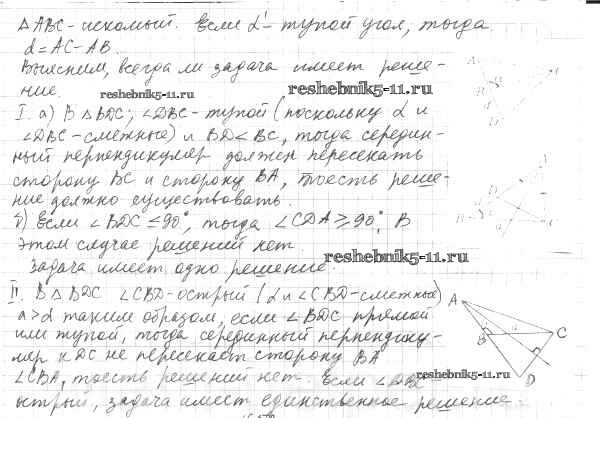 △ ABC - искомый. Если α - тупой угол, тогда
d = AC - AB.
Выясним, всегда ли задача имеет реше-
ние.
reshebnik5-11.ru
reshebnik5-11.ru
I. а) В △ BDC; ∠DBC - тупой (поскольку α и
∠DBC - смежные) и BD < BC, тогда середин-
ный перпендикуляр должен пересекать
сторону BC и сторону BA, тоесть реше-
ние должно существовать.
б) Если ∠BDC ≤ 90°, тогда ∠CDA ≥ 90°, В
этом случае решений нет.
reshebnik5-11.ru
Задача имеет одно решение.
II. В △ BDC ∠CBD - острый (α и ∠CBD - смежные)
a > d таким образом, если ∠BDC прямой
или тупой, тогда серединный перпендику-
ляр к DC не пересекает сторону BA
∠CBA, тоесть решений нет. Если ∠DBC -
reshebnik5-11.ru
острый, задача имеет единственное решение
A
B
C
D